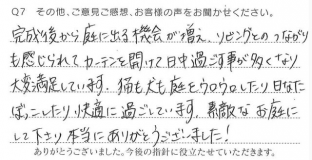 Q7 その他、ご意見ご感想、お客様の声をお聞かせください。
完成後から庭に出る機会が増え、リビングとのつながり
も感じられてカーテンを開けて日中過ごす事が多くなり
大変満足しています。猫も犬も庭をウロウロしたり日なた
ぼっこしたり快適に過ごしています。素敵なお庭に
して下さり本当にありがとうございました!
ありがとうございました。今後の指針に役立たせていただきます。